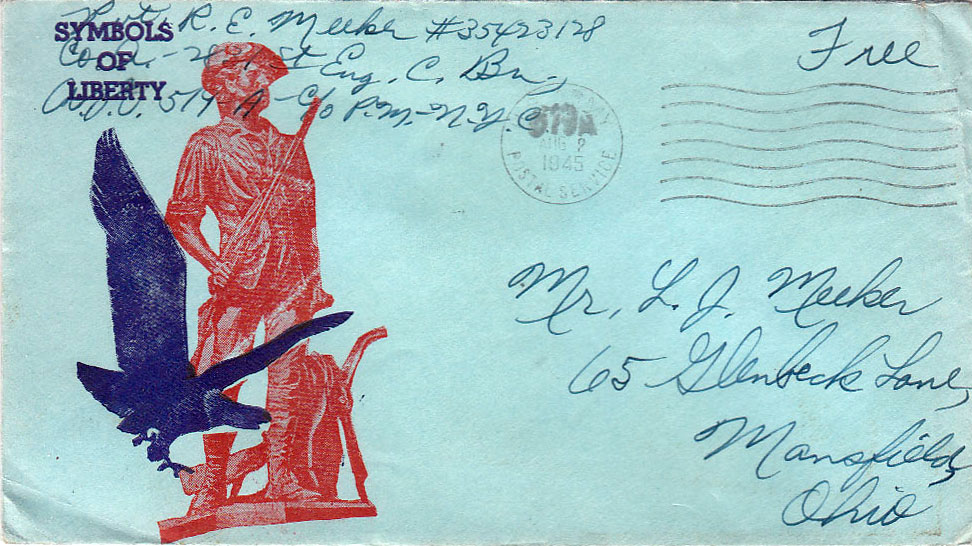 Pvt. R. E. Meeker #35423128
Co. A.-2831st Eng. C. Bn.,
A.P.O. 519-A-c/o P.M.-N.Y.C.
SYMBOLS
OF
LIBERTY
Free
519A
AUG 2
1945
POSTAL SERVICE
Mr. L. J. Meeker
65 Glenbeck Lane,
Mansfield,
Ohio